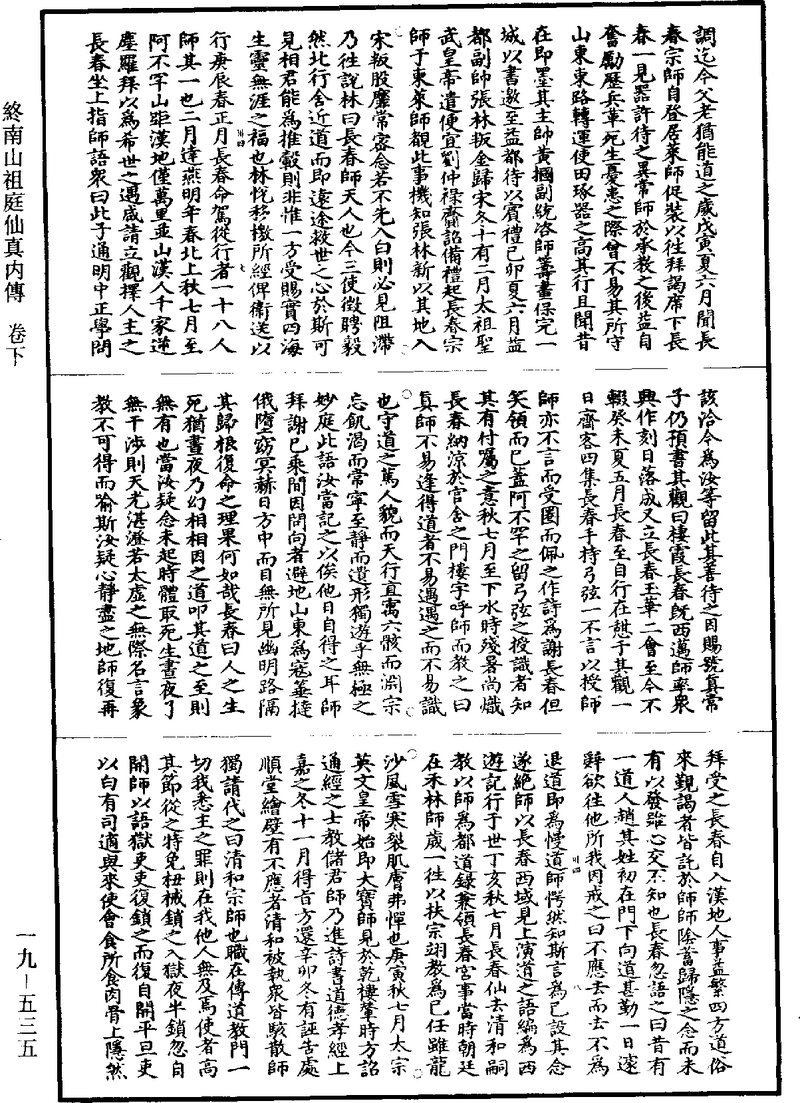 調迄今父老猶能道之歲戊寅夏六月聞長
春宗師自登居萊師促裝以徃拜謁席下長
春一見器許待之異常師於承教之後益自
奮勵歷兵革死生憂患之際曾不易其所守
山東東路轉運使田琢器之高其行且聞昔
在即墨其主帥黃摑副統咨師籌畫保完一
城以書邀至益都待以賓禮己卯夏六月益
都副帥張林叛金歸宋冬十有二月太祖聖
武皇帝遣便宜劉仲祿齎詔備禮起長春宗
師于東萊師觀此事機知張林新以其地入
宋叛股靡常密念若不先入白則必見阻滯
乃徃說林曰長春師天人也今三使徵聘毅
然此行舍近道而即遠途救世之心於斯可
見相君能為推轂則非惟一方受賜實四海
生靈無涯之福也林悅移檄所經俾衛送以
行庚辰春正月長春命駕從行者一十八人
師其一也二月達燕明年春北上秋七月至
阿不罕山距漢地僅萬里並山漢人千家逆
塵羅拜以為希世之遇咸請立觀擇人主之
長春坐上指師語衆曰此子通明中正學問
該洽今為汝等留此其善待之因賜號真常
子仍預書其觀曰棲霞長春旣西邁師率衆
興作刻日落成又立長春玉華二會至今不
輟癸未夏五月長春至自行在憇于其觀一
日齋客四集長春手持弓弦一不言以授師
師亦不言而受圜而佩之作詩為謝長春但
笑領而已蓋阿不罕之留弓弦之授識者知
其有付囑之意秋七月至下水時殘暑尚熾
長春納涼於官舍之門樓字呼師而教之曰
真師不易逢得道者不易遇遇之而不易識
也守道之篤人貌而天行直寓六骸而淵宗
忘飢渴而常寧至靜而遺形獨遊乎無極之
妙庭此語汝當記之以俟他日自得之耳師
拜謝已乘間因問向者避地山東為寇箠撻
俄墮窈冥赫日方中而目無所見幽明路隔
其歸根復命之理果何如哉長春曰人之生
死猶晝夜乃幻相相因之道叩其道之至則
無有也當汝疑念未起時體取死生晝夜了
無干涉則天光湛瀅若太虛之無際名言象
教不可得而喻斯汝疑心靜盡之地師復再
拜受之長春自入漢地人事益繁四方道俗
來覲謁者皆託於師師陰蓄歸隱之念而未
有以發雖心交不知也長春忽語之曰昔有
一道人趙其姓初在門下向道甚勤一日遽
辭欲徃他所我因戒之曰不應去而去不為
退道即為慢道師愕然知斯言為已設其念
遂絶師以長春西域見上演道之語編為西
遊記行于世丁亥秋七月長春仙去清和嗣
教以師為都道錄兼領長春宮事當時朝廷
在禾林師歲一徃以扶宗翊教為已任雖龍
沙風雪寒裂肌膚弗憚也庚寅秋七月太宗
英文皇帝始即大寶師見於乾樓輦時方詔
通經之士教儲君師乃進詩書道德孝經上
嘉之冬十一月得旨方還辛卯冬有誣告處
順堂繪壁有不應者清和被執衆皆駭散師
獨請代之曰清和宗師也職在傳道教門一
切我悉主之罪則在我他人無及焉使者高
其節從之特免杻械鎖之入獄夜半鎖忽自
開師以語獄吏吏復鎖之而復自開平旦吏
以白有司適與來使會食所食肉骨上隱然
終南山祖庭仙真内傳　卷下
一九-五三五